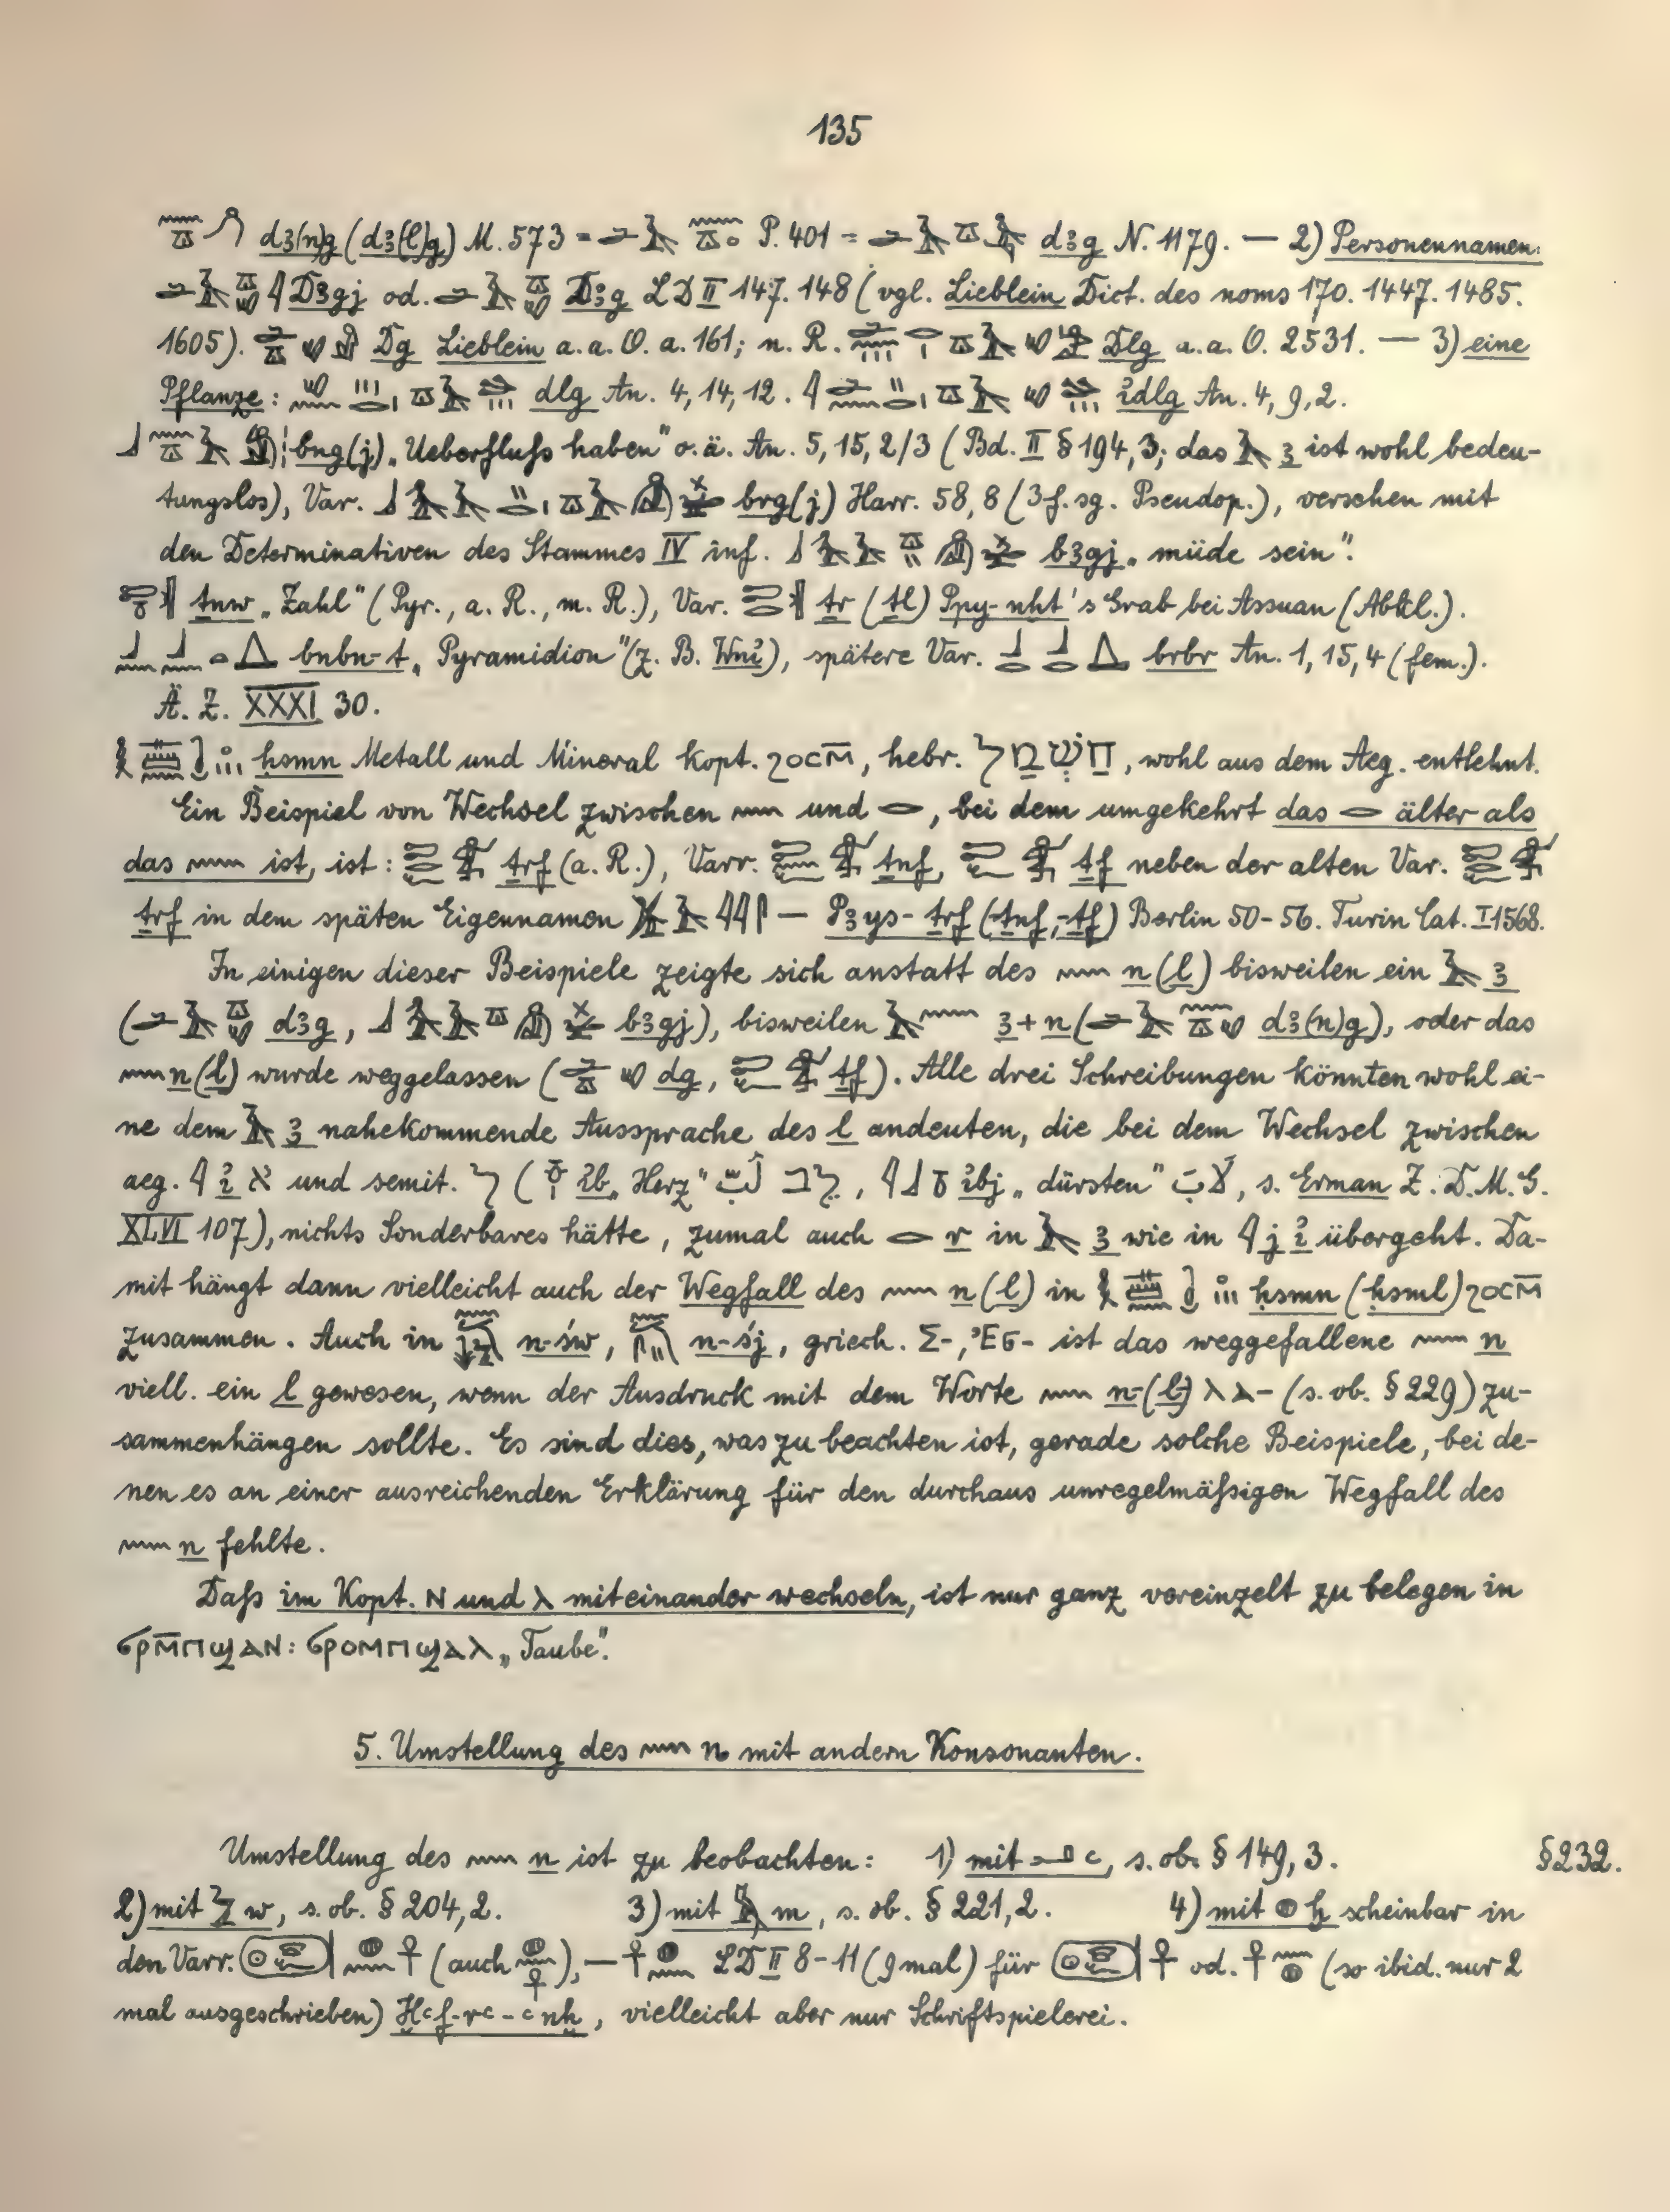 135
d3(n)g (d3(l)g) M. 573 = P. 401 = d3g N. 1179. — 2) Personennamen:
D3gj od. D3g LD II 147. 148 (vgl. Lieblein Dict. des noms 170. 1447. 1485.
1605). Dg Lieblein a. a. O. a. 161; n. R. Dlg a. a. O. 2531. — 3) eine
Pflanze: dlg An. 4, 14, 12. i҆dlg An. 4, 9, 2.
bng(j) „Ueberfluſs haben" o. ä. An. 5, 15, 2/3 (Bd. II § 194, 3; das 𓄿 3 ist wohl bedeu-
tungslos), Var. brg(j) Harr. 58, 8 (3 f. sg. Pseudop.), versehen mit
den Determinativen des Stammes IV inf. b3gj „müde sein".
ṯnw „Zahl" (Pyr., a. R., m. R.), Var. ṯr (ṯl) Ppy-nḫt's Grab bei Assuan (Abkl.).
bnbn-t „Pyramidion" (z. B. Wni҆), spätere Var. brbr An. 1, 15, 4 (fem.).
Ä. Z. XXXI 30.
ḥsmn Metall und Mineral kopt. ϩⲟⲥⲙ̄, hebr. חַשְׁמַל, wohl aus dem Aeg. entlehnt.
Ein Beispiel von Wechsel zwischen 𓈖 und 𓂋, bei dem umgekehrt das 𓂋 älter als
das 𓈖 ist, ist: ṯrf (a. R.), Varr. ṯnf, ṯf neben der alten Var.
ṯrf in dem späten Eigennamen — P3 ys-ṯrf (-ṯnf, -ṯf) Berlin 50-56. Turin Cat. I 1568.
In einigen dieser Beispiele zeigte sich anstatt des 𓈖 n (l) bisweilen ein 𓄿 3
(d3g, b3gj), bisweilen 𓄿𓈖 3+n (d3(n)g), oder das
𓈖 n (l) wurde weggelassen (dg, ṯf). Alle drei Schreibungen könnten wohl ei-
ne dem 𓄿 3 nahekommende Aussprache des l andeuten, die bei dem Wechsel zwischen
aeg. 𓇋 i҆ א und semit. ל (i҆b „Herz" לב, i҆bj „dürsten", s. Erman Z. D. M. G.
XLVI 107), nichts Sonderbares hätte, zumal auch 𓂋 r in 𓄿 3 wie in 𓇋 j i҆ übergeht. Da-
mit hängt dann vielleicht auch der Wegfall des 𓈖 n (l) in ḥsmn (ḥsml) ϩⲟⲥⲙ̄
zusammen. Auch in n-św, n-śj, griech. Σ-, Ἐσ- ist das weggefallene 𓈖 n
viell. ein l gewesen, wenn der Ausdruck mit dem Worte 𓈖 n-(l-) ⲗⲁ- (s. ob. § 229) zu-
sammenhängen sollte. Es sind dies, was zu beachten ist, gerade solche Beispiele, bei de-
nen es an einer ausreichenden Erklärung für den durchaus unregelmäſsigen Wegfall des
𓈖 n fehlte.
Daſs im Kopt. ⲛ und ⲗ miteinander wechseln, ist nur ganz vereinzelt zu belegen in
ϭⲣⲙ̄ⲡϣⲁⲛ: ϭⲣⲟⲙⲡϣⲁⲗ „Taube".
5. Umstellung des 𓈖 n mit andern Konsonanten.
Umstellung des 𓈖 n ist zu beobachten: 1) mit 𓂝 ꜥ, s. ob. § 149, 3. § 232.
2) mit 𓅱 w, s. ob. § 204, 2. 3) mit 𓅓 m, s. ob. § 221, 2. 4) mit 𓐍 ḫ scheinbar in
den Varr. (auch), — LD II 8-11 (9 mal) für od. (so ibid. nur 2
mal ausgeschrieben) Ḫꜥf-rꜥ-ꜥnḫ, vielleicht aber nur Schriftspielerei.